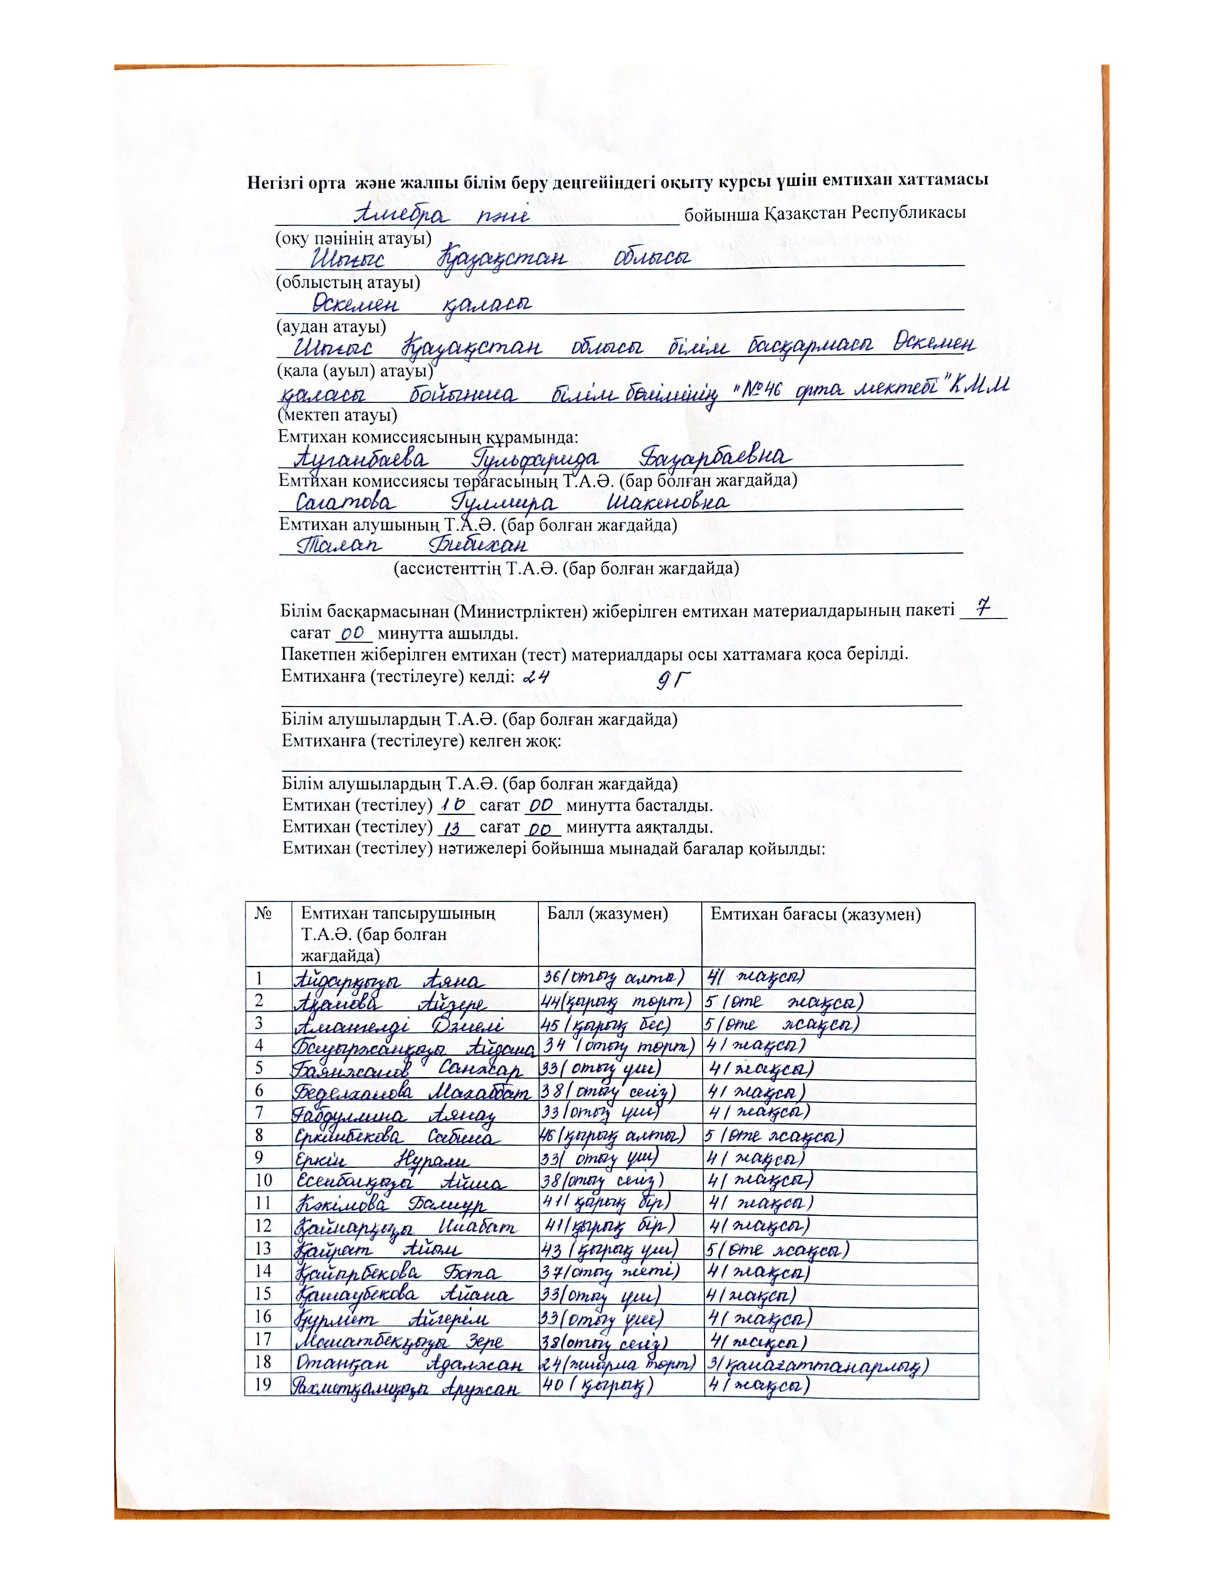 Негізгі орта және жалпы білім беру деңгейіндегі оқыту курсы үшін емтихан хаттамасы
Алгебра пәні бойынша Қазақстан Республикасы
(оқу пәнінің атауы)
Шығыс Қазақстан облысы
(облыстың атауы)
Өскемен қаласы
(аудан атауы)
Шығыс Қазақстан облысы білім басқармасы Өскемен
(қала (ауыл) атауы)
қаласы бойынша білім бөлімінің "№46 орта мектебі" КММ
(мектеп атауы)
Емтихан комиссиясының құрамында:
Ауганбаева Гульфарида Базарбаевна
Емтихан комиссиясы төрағасының Т.А.Ә. (бар болған жағдайда)
Сағатова Гулмира Шакеновна
Емтихан алушының Т.А.Ә. (бар болған жағдайда)
Талап Бибихан
(ассистенттің Т.А.Ә. (бар болған жағдайда)
Білім басқармасынан (Министрліктен) жіберілген емтихан материалдарының пакеті 7
сағат 00 минутта ашылды.
Пакетпен жіберілген емтихан (тест) материалдары осы хаттамаға қоса берілді.
Емтиханға (тестілеуге) келді: 24 9Г
Білім алушылардың Т.А.Ә. (бар болған жағдайда)
Емтиханға (тестілеуге) келген жоқ:
Білім алушылардың Т.А.Ә. (бар болған жағдайда)
Емтихан (тестілеу) 10 сағат 00 минутта басталды.
Емтихан (тестілеу) 13 сағат 00 минутта аяқталды.
Емтихан (тестілеу) нәтижелері бойынша мынадай бағалар қойылды:
№ Емтихан тапсырушының Балл (жазумен) Емтихан бағасы (жазумен)
Т.А.Ә. (бар болған
жағдайда)
1 Айдарқызы Аяна 36 (отыз алты) 4 ( жақсы)
2 Айзере 44 (қырық төрт) 5 (өте жақсы)
3 Амангелді 45 ( қырық бес) 5 (өте жақсы)
4 Бауыржанқызы Айдана 34 (отыз төрт) 4 ( жақсы)
5 Баянжанов Санжар 33 ( отыз үш) 4 ( жақсы)
6 Беделханова Махаббат 38 ( отыз сегіз) 4 ( жақсы)
7 Габдуллина Аянау 33 (отыз үш) 4 ( жақсы)
8 Еркинбекова Сабина 46 (қырық алты) 5 (өте жақсы)
9 Еркін Нұрали 33 ( отыз үш) 4 ( жақсы)
10 Есенболқызы Айша 38 (отыз сегіз) 4 ( жақсы)
11 Кәкімова Балнур 41 ( қырық бір) 4 ( жақсы)
12 Қайнарқызы Инабат 41 (қырық бір) 4 ( жақсы)
13 Қайрат Айым 43 ( қырық үш) 5 ( өте жақсы)
14 Қайырбекова Бота 37 (отыз жеті) 4 ( жақсы)
15 Қашаубекова Айана 33 (отыз үш) 4 ( жақсы)
16 Құрмет Айгерім 33 (отыз үш) 4 ( жақсы)
17 Манатбекқызы Зере 38 (отыз сегіз) 4 ( жақсы)
18 Отанқан Адалжан 24 (жиырма төрт) 3 ( қанағаттанарлық)
19 Аружан 40 ( қырық) 4 ( жақсы)